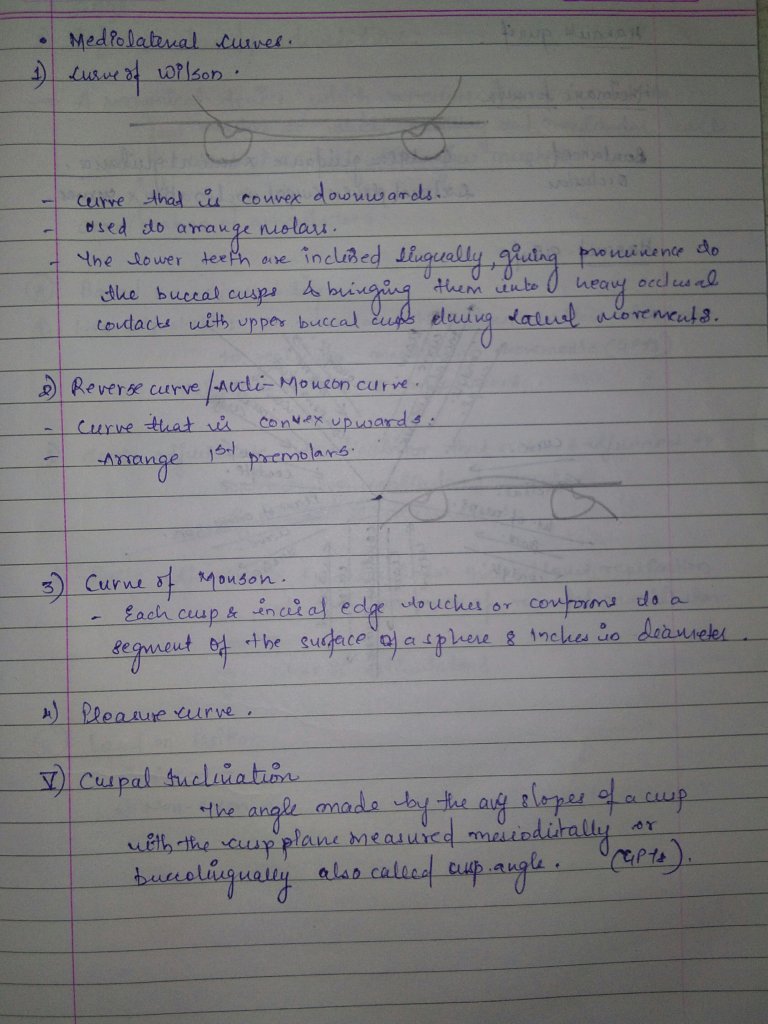 • Mediolateral curves.
1) Curve of Wilson.
- Curve that is convex downwards.
- Used to arrange molars.
- The lower teeth are inclined lingually, giving prominence to
the buccal cusps & bringing them into heavy occlusal
contacts with upper buccal cusps during lateral movements.
2) Reverse curve / Anti-Monson curve.
- Curve that is convex upwards.
- Arrange 1st premolars.
3) Curve of Monson.
- Each cusp & incisal edge touches or conforms to a
segment of the surface of a sphere 8 inches in diameter.
4) Pleasure curve.
V) Cuspal Inclination
The angle made by the avg slopes of a cusp
with the cusp plane measured mesiodistally or
buccolingually also called cusp angle.